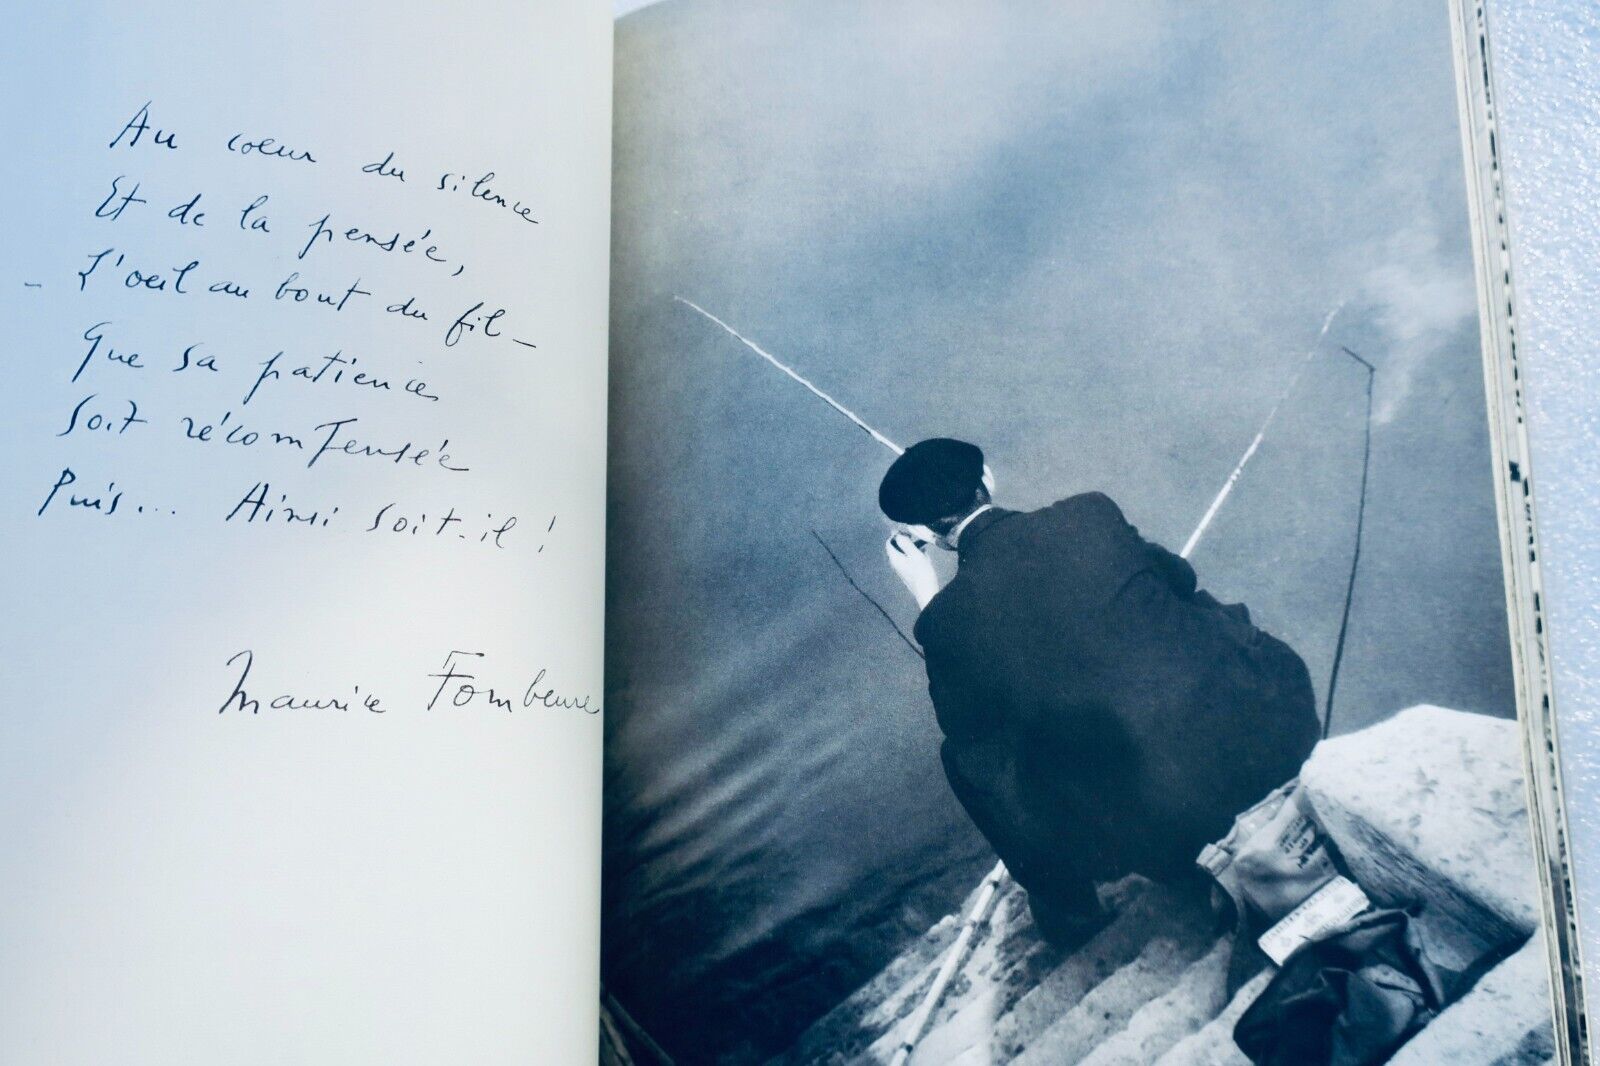 Au coeur du silence
Et de la pensée,
- L'oeil au bout du fil -
Que sa patience
Soit récompensée
Puis... Ainsi soit-il !
Maurice Fombeure